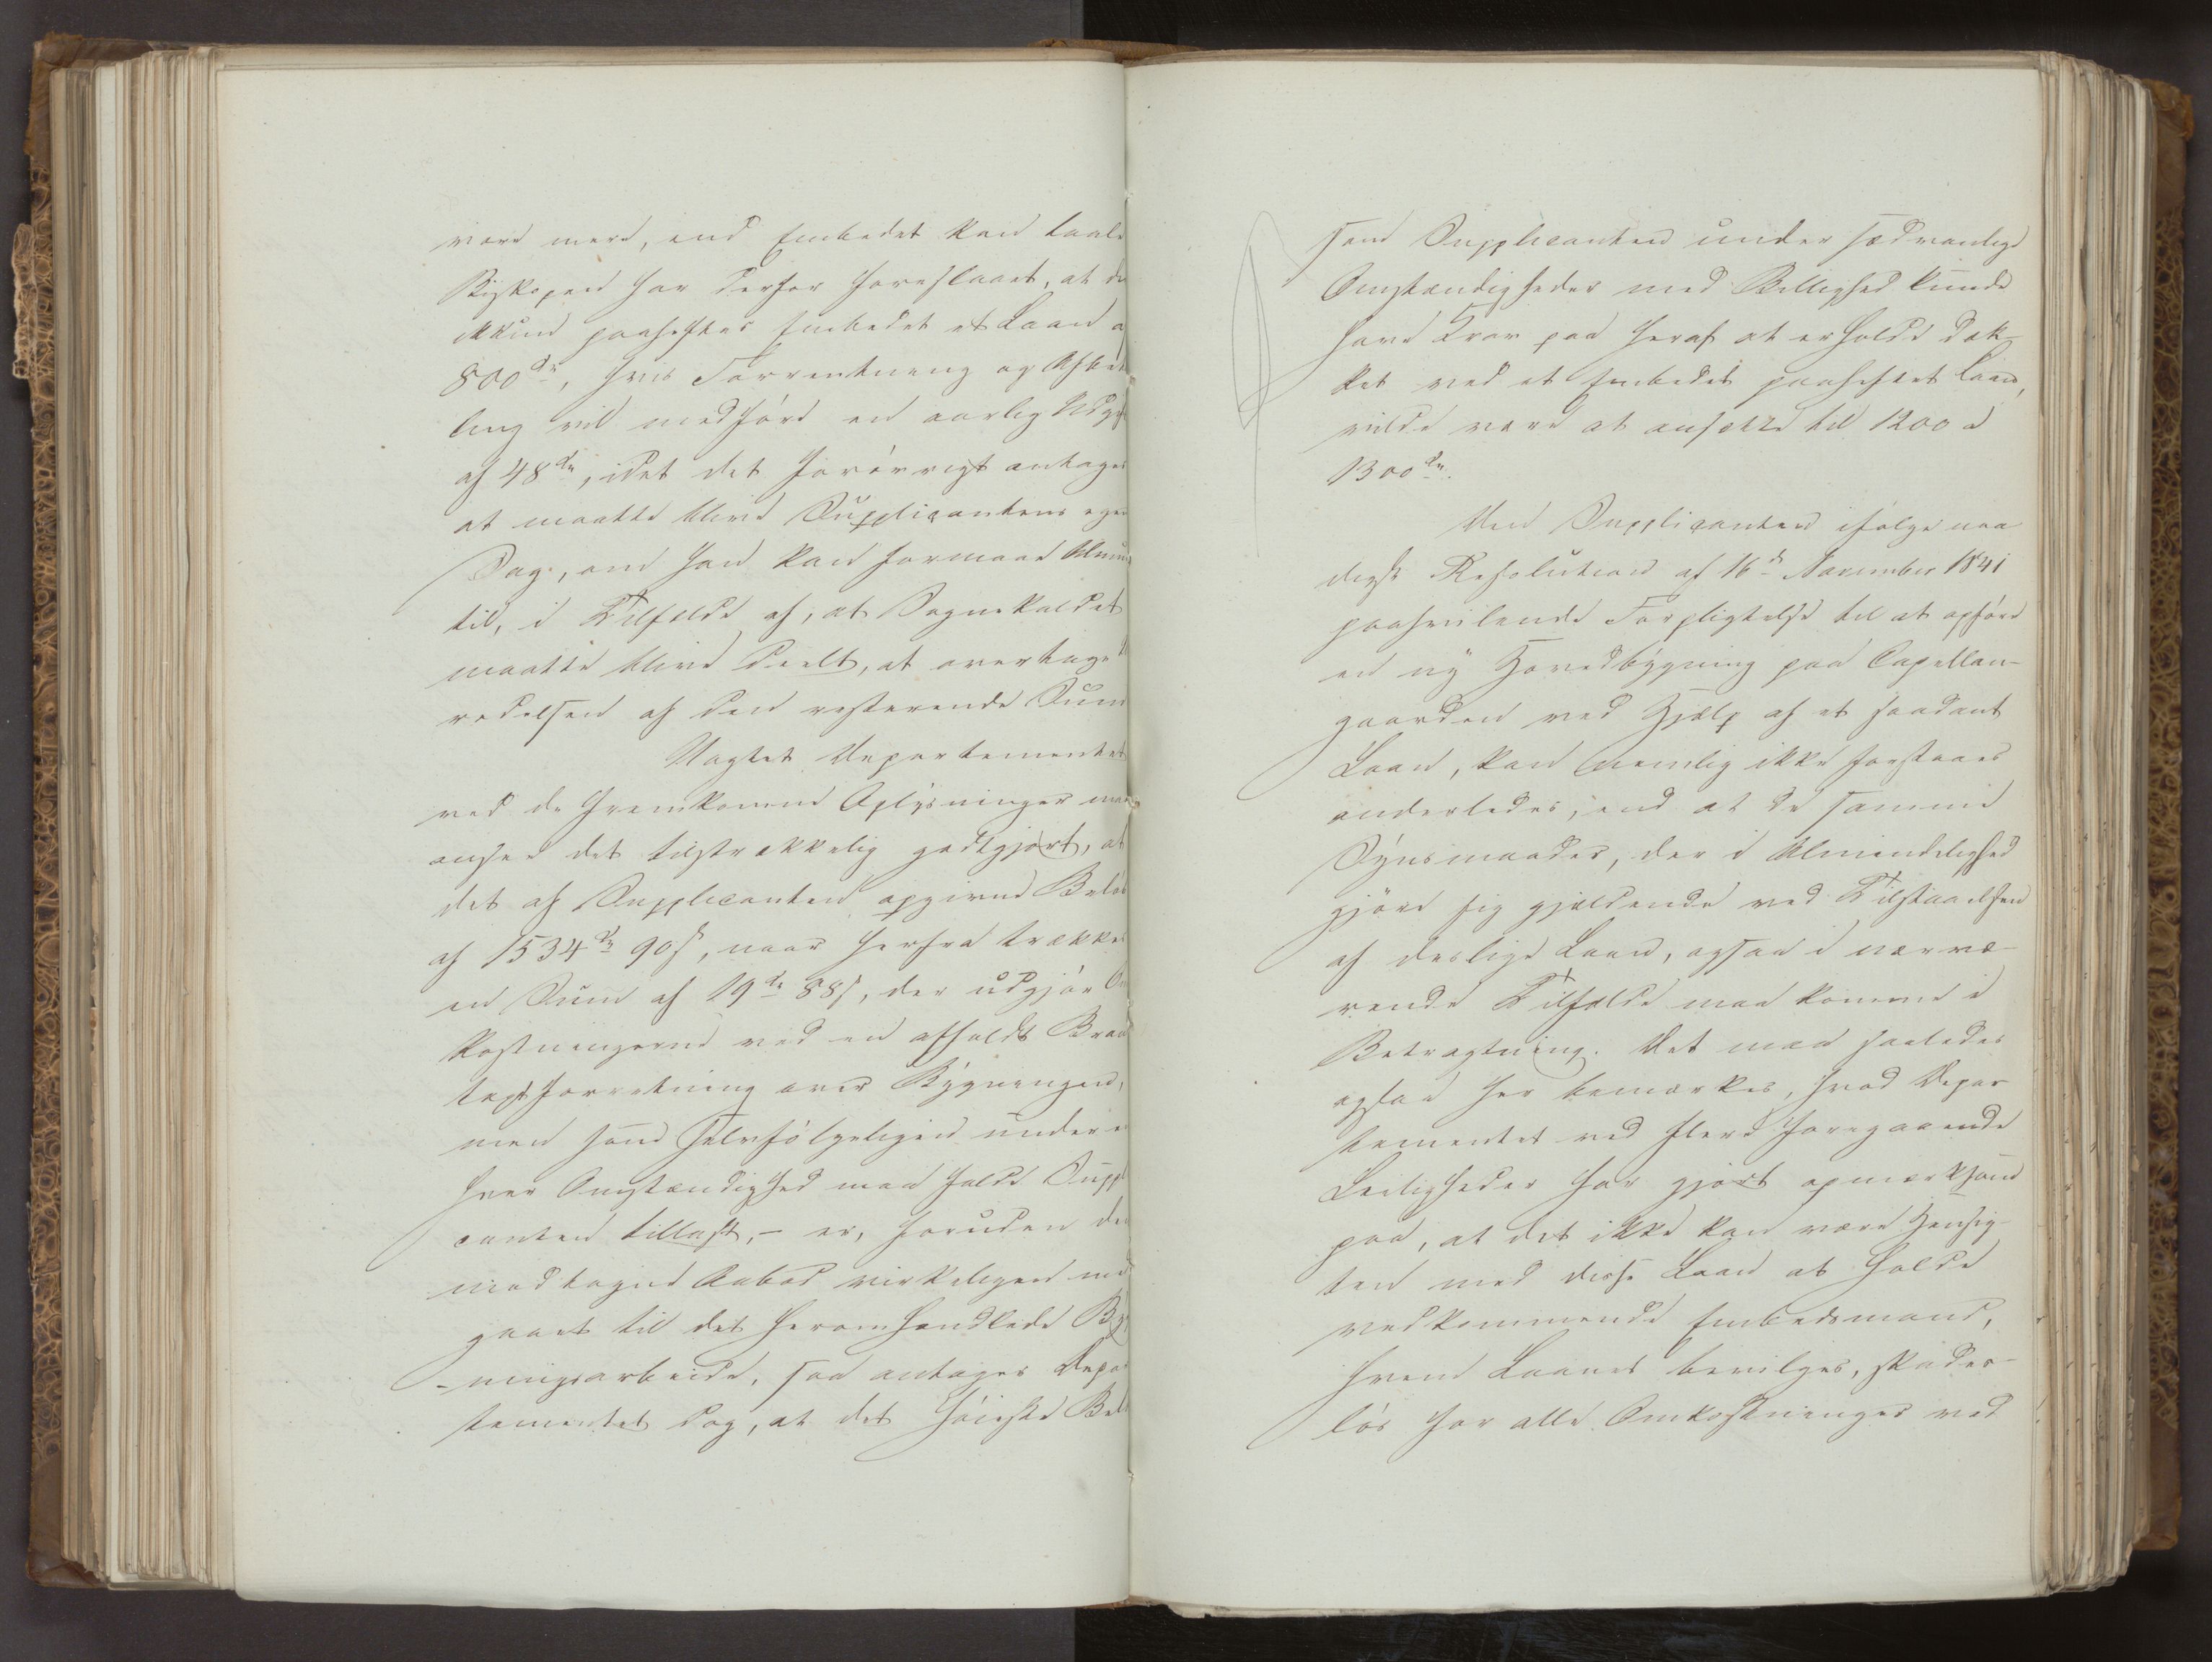 være mere, end Embedet kan taale
Biskopen har derfor foreslaaet, at der
ikkun paaheftes Embedet et Laan a
800 dr, hvis Forrentning og Afbeta
ling vil medføre en aarlig Udgift
af 48 dr, idet det forøvrigt antages
at maatte blive Supplicantens egen
Sag, om han kan formaae Almue
til, i Tilfælde af, at Sognekaldet
maatte blive deelt, at overtage
redelsen af den resterende Sum
Uagtet Departementet
ved de fremkomne Oplysninger maa
ansee det tilstrækkelig godtgjort, at
det af Supplicanten opgivne Beløb
af 1534 dr 90 s, naar herfra trækkes
en Sum af 19 dr 88 s, der udgjør Om
kostningerne ved en afholdt Brand
taxtforretning over Bygningen,
men som selvfølgeligen under e
hver Omstændighed maa falde Suppl
canten tillast, – er, foruden den
modtagne Aabod virkeligen med
gaaet til det heromhandlede Byg
-ningsarbeide, saa antages Depar
tementet dog, at det høieste Beløb
som Supplicanten under sædvanlige
Omstændigheder med Billighed kunde
have Krav paa heraf at erholde dæk-
ket ved et Embedet paaheftet Laan,
vilde være at ansætte til 1200 a
1300 dr.
Den Supplicanten ifølge naa
digst Resolution af 16 d November 1841
paahvilende Forpligtelse til at opføre
en ny Hovedbygning paa Capellan-
gaarden ved Hjælp af et saadant
Laan, kan nemlig ikke forstaaes
anderledes, end at de samme
Synsmaader, der i Almindelighed
gjøre sig gjældende ved Tilstaaelsen
af deslige Laan, ogsaa i nærvæ-
rende Tilfælde maa komme i
Betragtning. Det maa saaledes
ogsaa her bemærkes, hvad Depar
tementet ved flere foregaaende
Leiligheder har gjort opmærksom
paa, at det ikke kan være Hensig-
ten med disse Laan at holde
vedkommende Embedsmand,
hvem Laanet bevilges, skades-
løs for alle Omkostninger ved